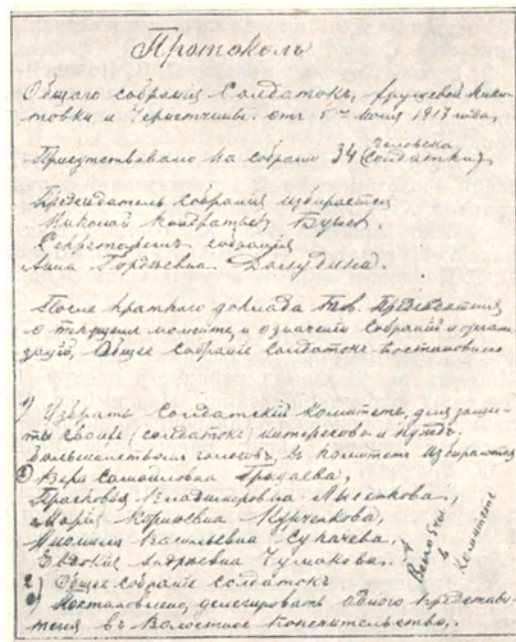 Протоколъ
Общаго собранія Солдатокъ, Грушевой Ники-
товки и отъ 5 1917 года,
Присутствовало на собраніи 34 человека (солдатки)
Председатель собранія избирается
Николай Кондратьев
Секретаремъ собранія
Анна Гордѣевна
После краткаго доклада Тов. Председателя
о текущем моменте, и о значеніи собраній и органи-
зацій, Общее собраніе солдаток постановило
1) Избрать Солдатскій Комитетъ, для защи-
ты своихъ (солдаток) интересовъ и нуждъ.
голосовъ, въ комитетъ избираются
Вера Самойловна
Прасковья Владимировна Лысенкова,
Мария Курченкова,
Васильевна Сукачева.
Евдокия Андреевна Чумакова.
2) Общее собраніе солдатокъ
Постановлено, делегировать одного представи-
теля въ Волостное
в Комитете